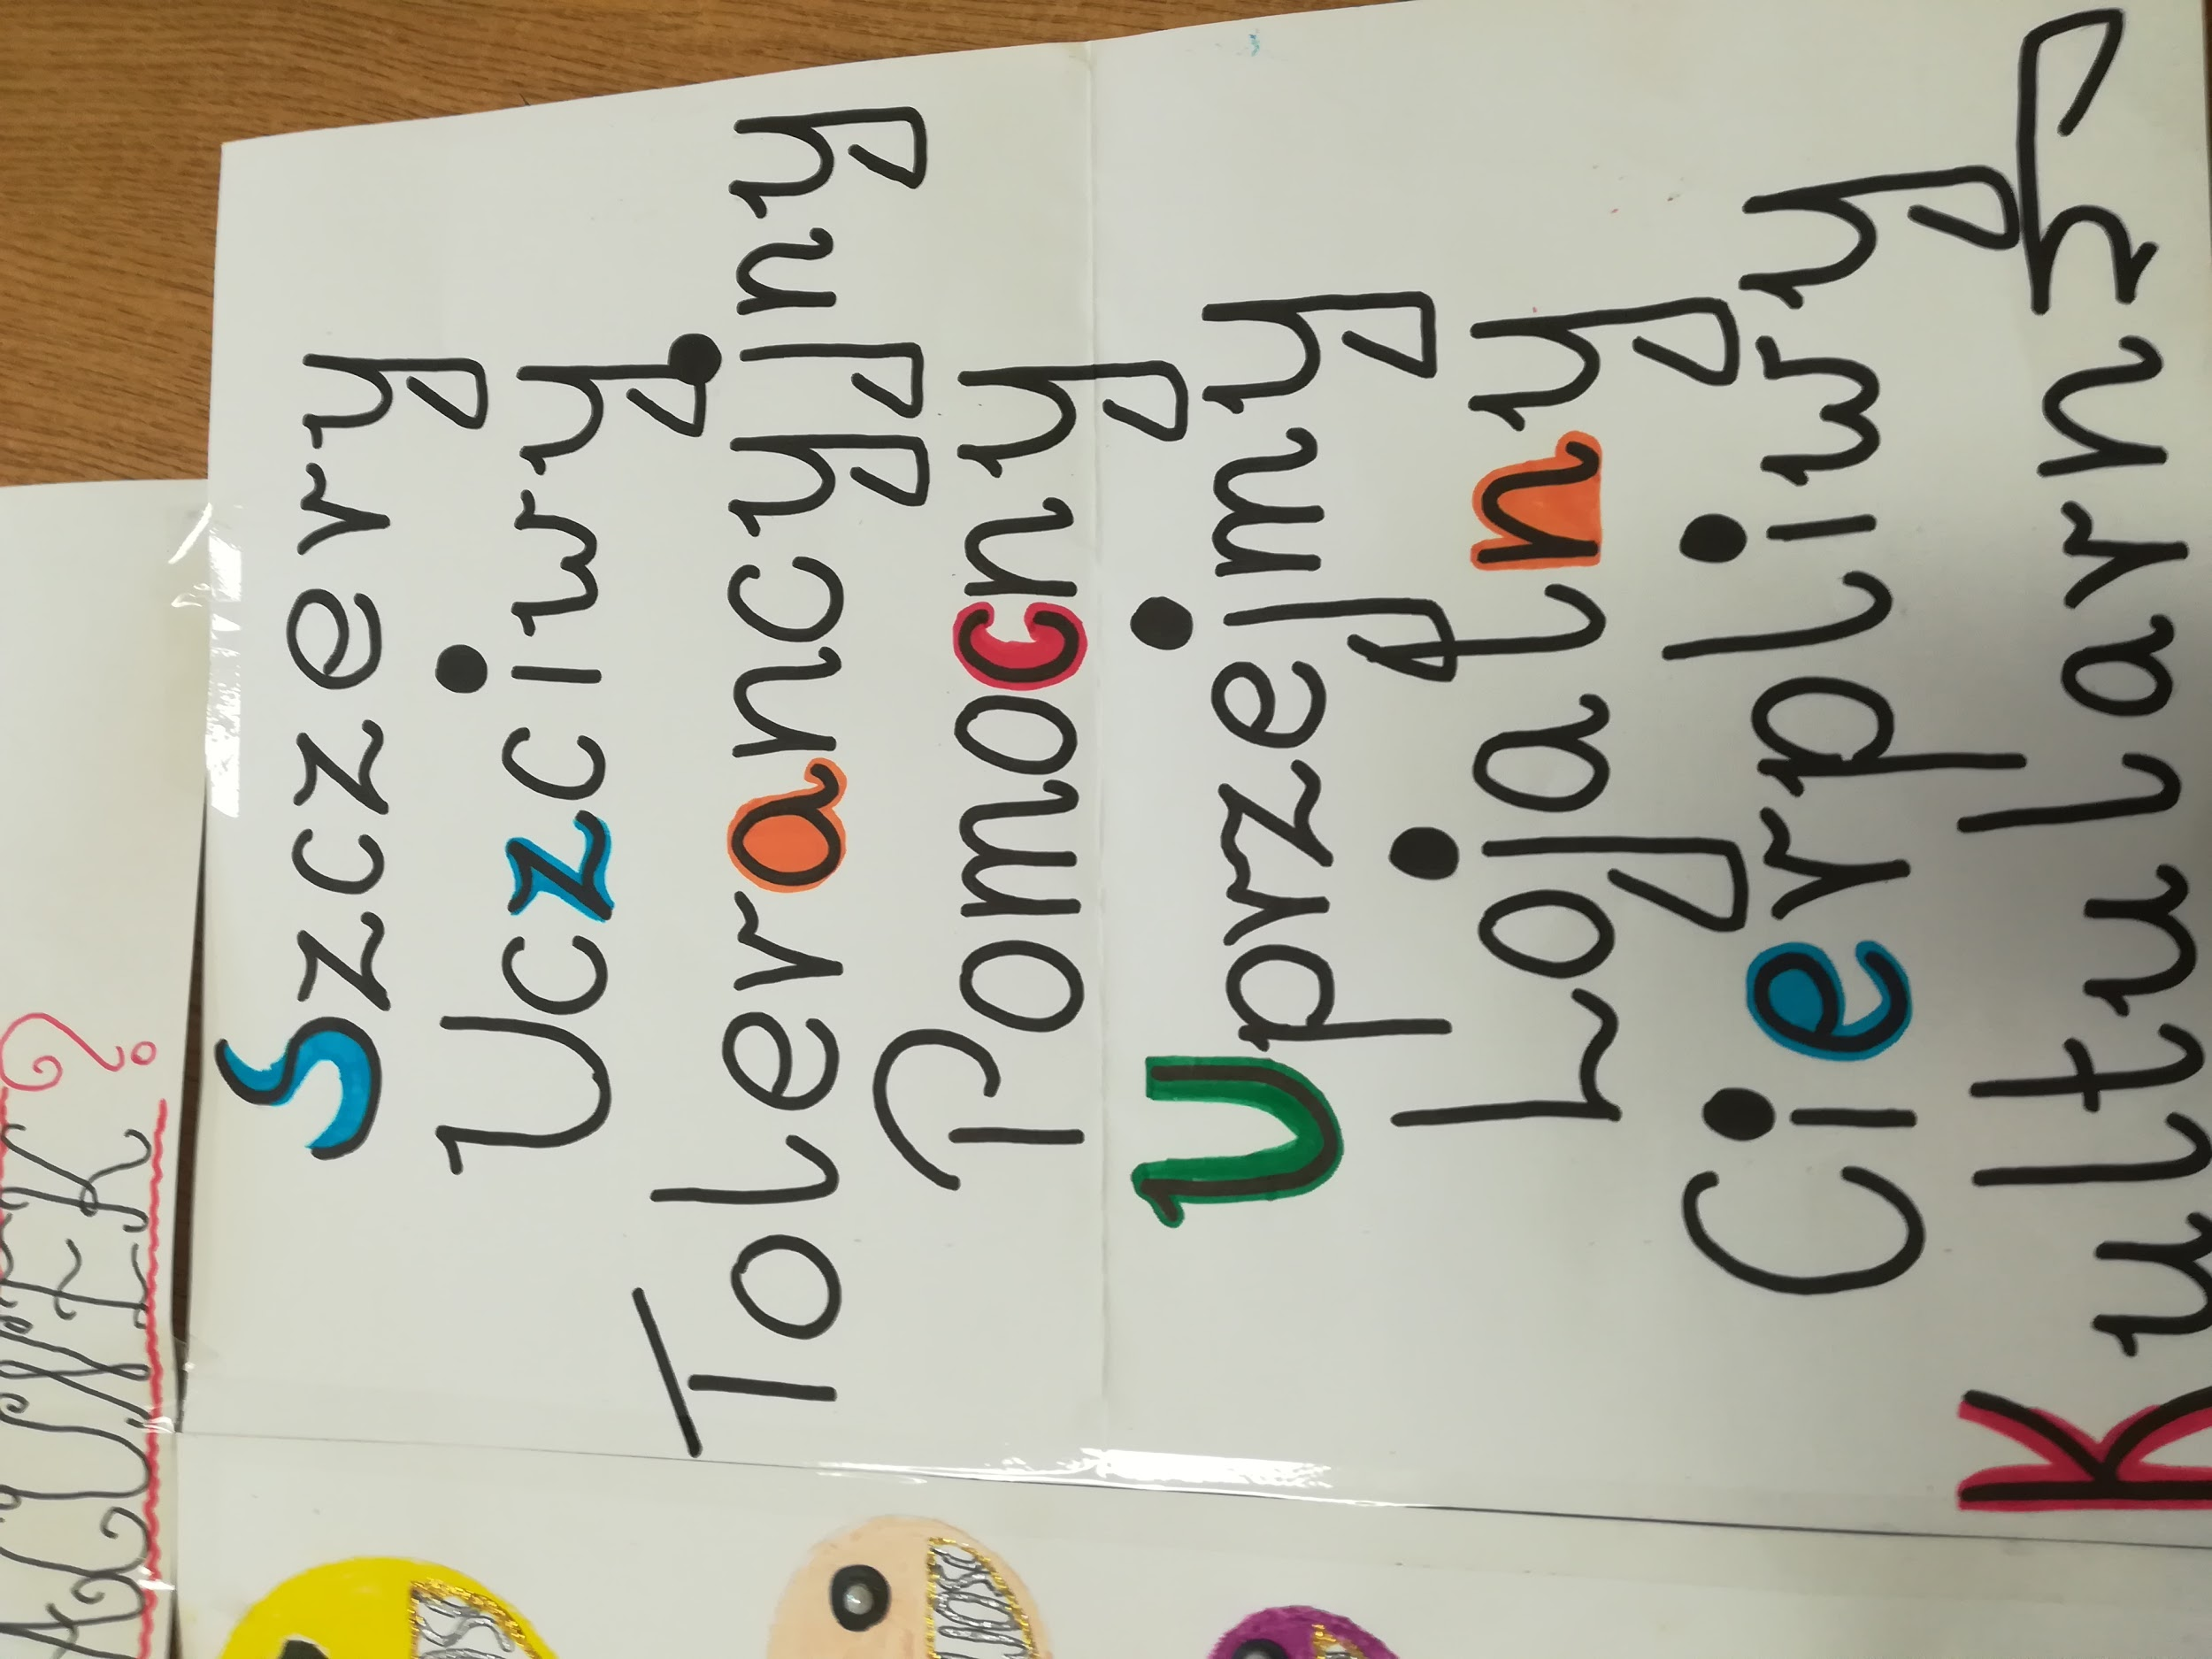 Szczery
Uczciwy
Tolerancyjny
Pomocny
Uprzejmy
Lojalny
Cierpliwy
Kulturalny